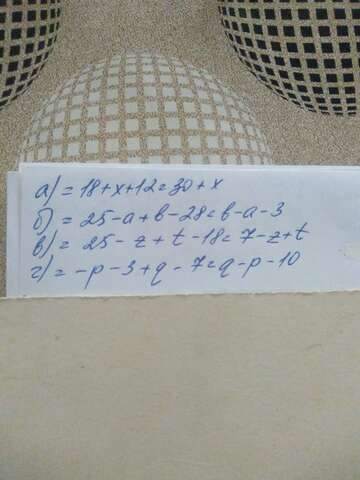 а) = 18+x+12=30+x
б) = 25-a+b-28=b-a-3
в) = 25-z+t-18=7-z+t
г) = -p-3+q-7=q-p-10